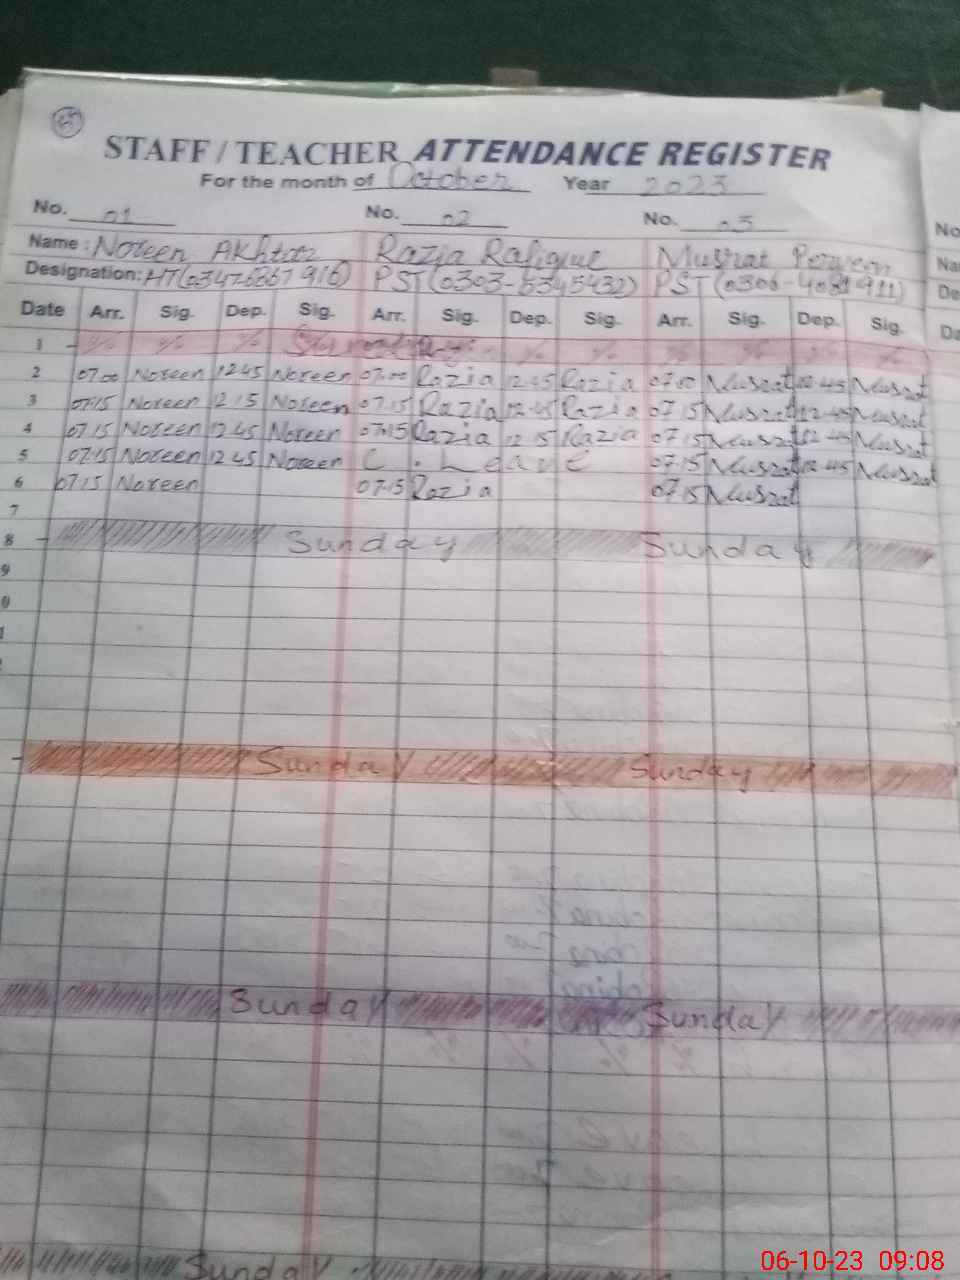 STAFF / TEACHER ATTENDANCE REGISTER
For the month of October Year 2023
No. 01 No. 02 No. 03
Name: Noreen Akhtar Razia Rafique Musrat Perveen
Designation: HT PST (0303-5345432) PST
Date Arr. Sig. Dep. Sig. Arr. Sig. Dep. Sig. Arr. Sig. Dep. Sig.
1
2 07.00 Noreen 12 45 Noreen 07.00 Razia 12.45 Razia 07.00 Musrat 12.45 Musrat
3 07.15 Noreen 12 15 Noreen 07.15 Razia 12.45 Razia 07.15 Musrat 12.45 Musrat
4 07.15 Noreen 12 45 Noreen 07.15 Razia 12.15 Razia 07.15 Musrat 12.45 Musrat
5 07.15 Noreen 12 45 Noreen C. Leave 07.15 Musrat 12.45 Musrat
6 07.15 Noreen 07.15 Razia 07.15 Musrat
7
8 Sunday Sunday
9
Sunday Sunday
Sunday Sunday
Sunday
06-10-23 09:08